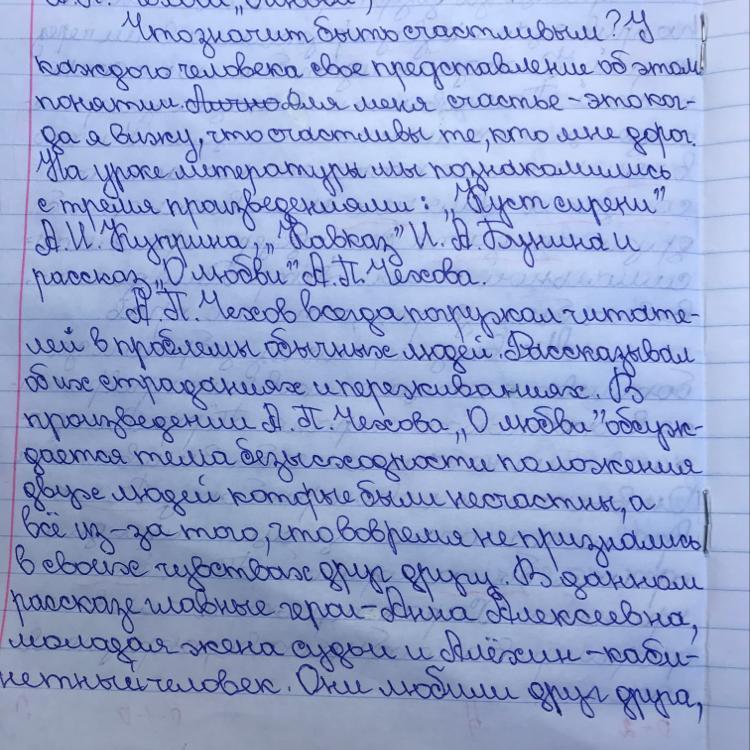 Что значит быть счастливым? У
каждого человека свое представление об этом
понятии. Лично для меня счастье - это ког-
да я вижу, что счастливы те, кто мне дорог.
На уроке литературы мы познакомились
с тремя произведениями: „Куст сирени"
А. И. Куприна, „Кавказ" И. А. Бунина и
рассказ „О любви" А. П. Чехова.
А. П. Чехов всегда погружал читате-
лей в проблемы обычных людей. Рассказывал
об их страданиях и переживаниях. В
произведении А. П. Чехова „О любви" обсуж-
дается тема безысходности положения
двух людей которые были несчастны, а
всё из-за того, что вовремя не признались
в своих чувствах друг другу. В данном
рассказе главные герои - Анна Алексеевна,
молодая жена судьи и Алёхин - каби-
нетный человек. Они любили друг друга,